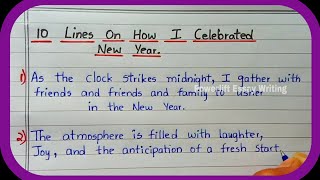 10 Lines On How I Celebrated
New Year.
1) As the clock strikes midnight, I gather with
friends and friends and family to usher
in the New Year.
Powerlift Essay Writing
2) The atmosphere is filled with laughter,
Joy, and the anticipation of a fresh start.